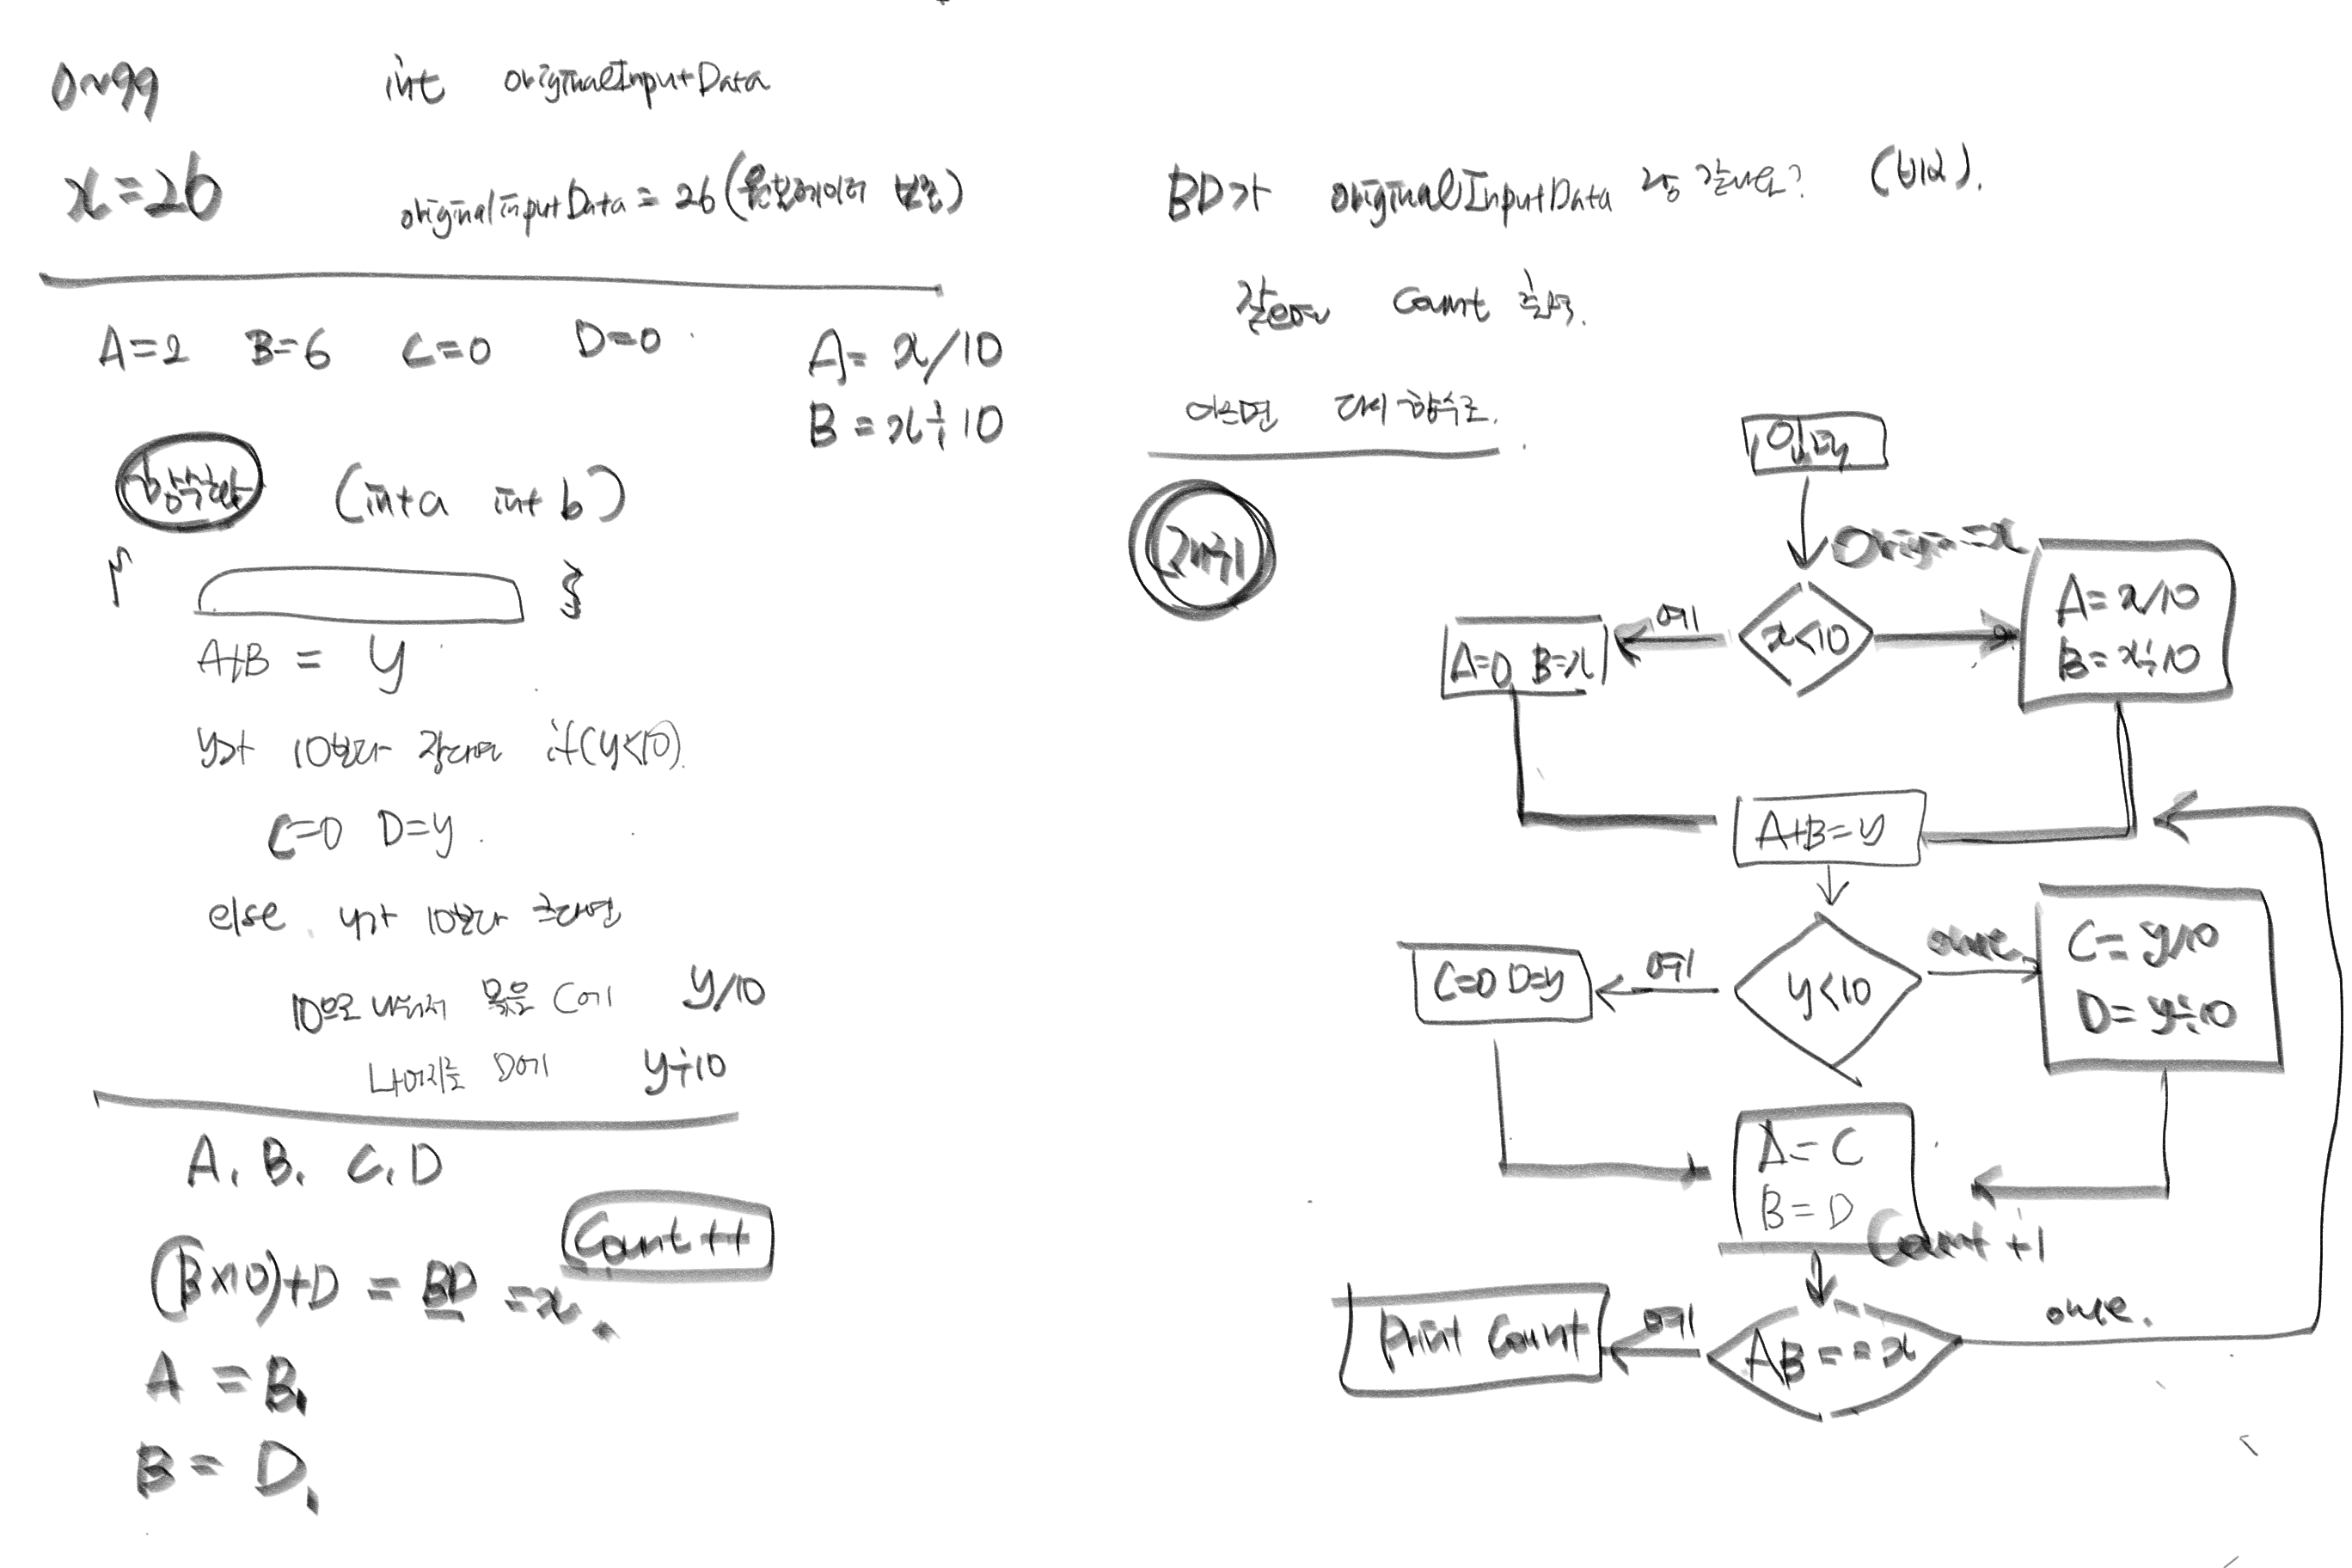 0~99
int originalInputData
x=26
originalinputData = 26 (원본데이터 보존)
A=2 B=6 C=0 D=0
A= x/10
B = x÷10
(int a int b)
{ }
A+B = y
y가 10보다 작다면 if(y<10)
C=0 D=y
else y가 10보다 크다면
10으로 나눠서 몫은 C에 y/10
나머지는 D에 y÷10
A, B, C, D
Count++
(B×10)+D = BD = x
A = B,
B = D,
BD가 originalInputData 랑 같나요? (비교).
같으면 Count 출력.
다시 함수로.
재귀
입력
Origin=x
x<10
예
A=0 B=x
A= x/10
B= x÷10
A+B=y
y<10
예
C=0 D=y
C= y/10
D= y÷10
A= C
B= D
Count +1
AB==x
예
Print Count